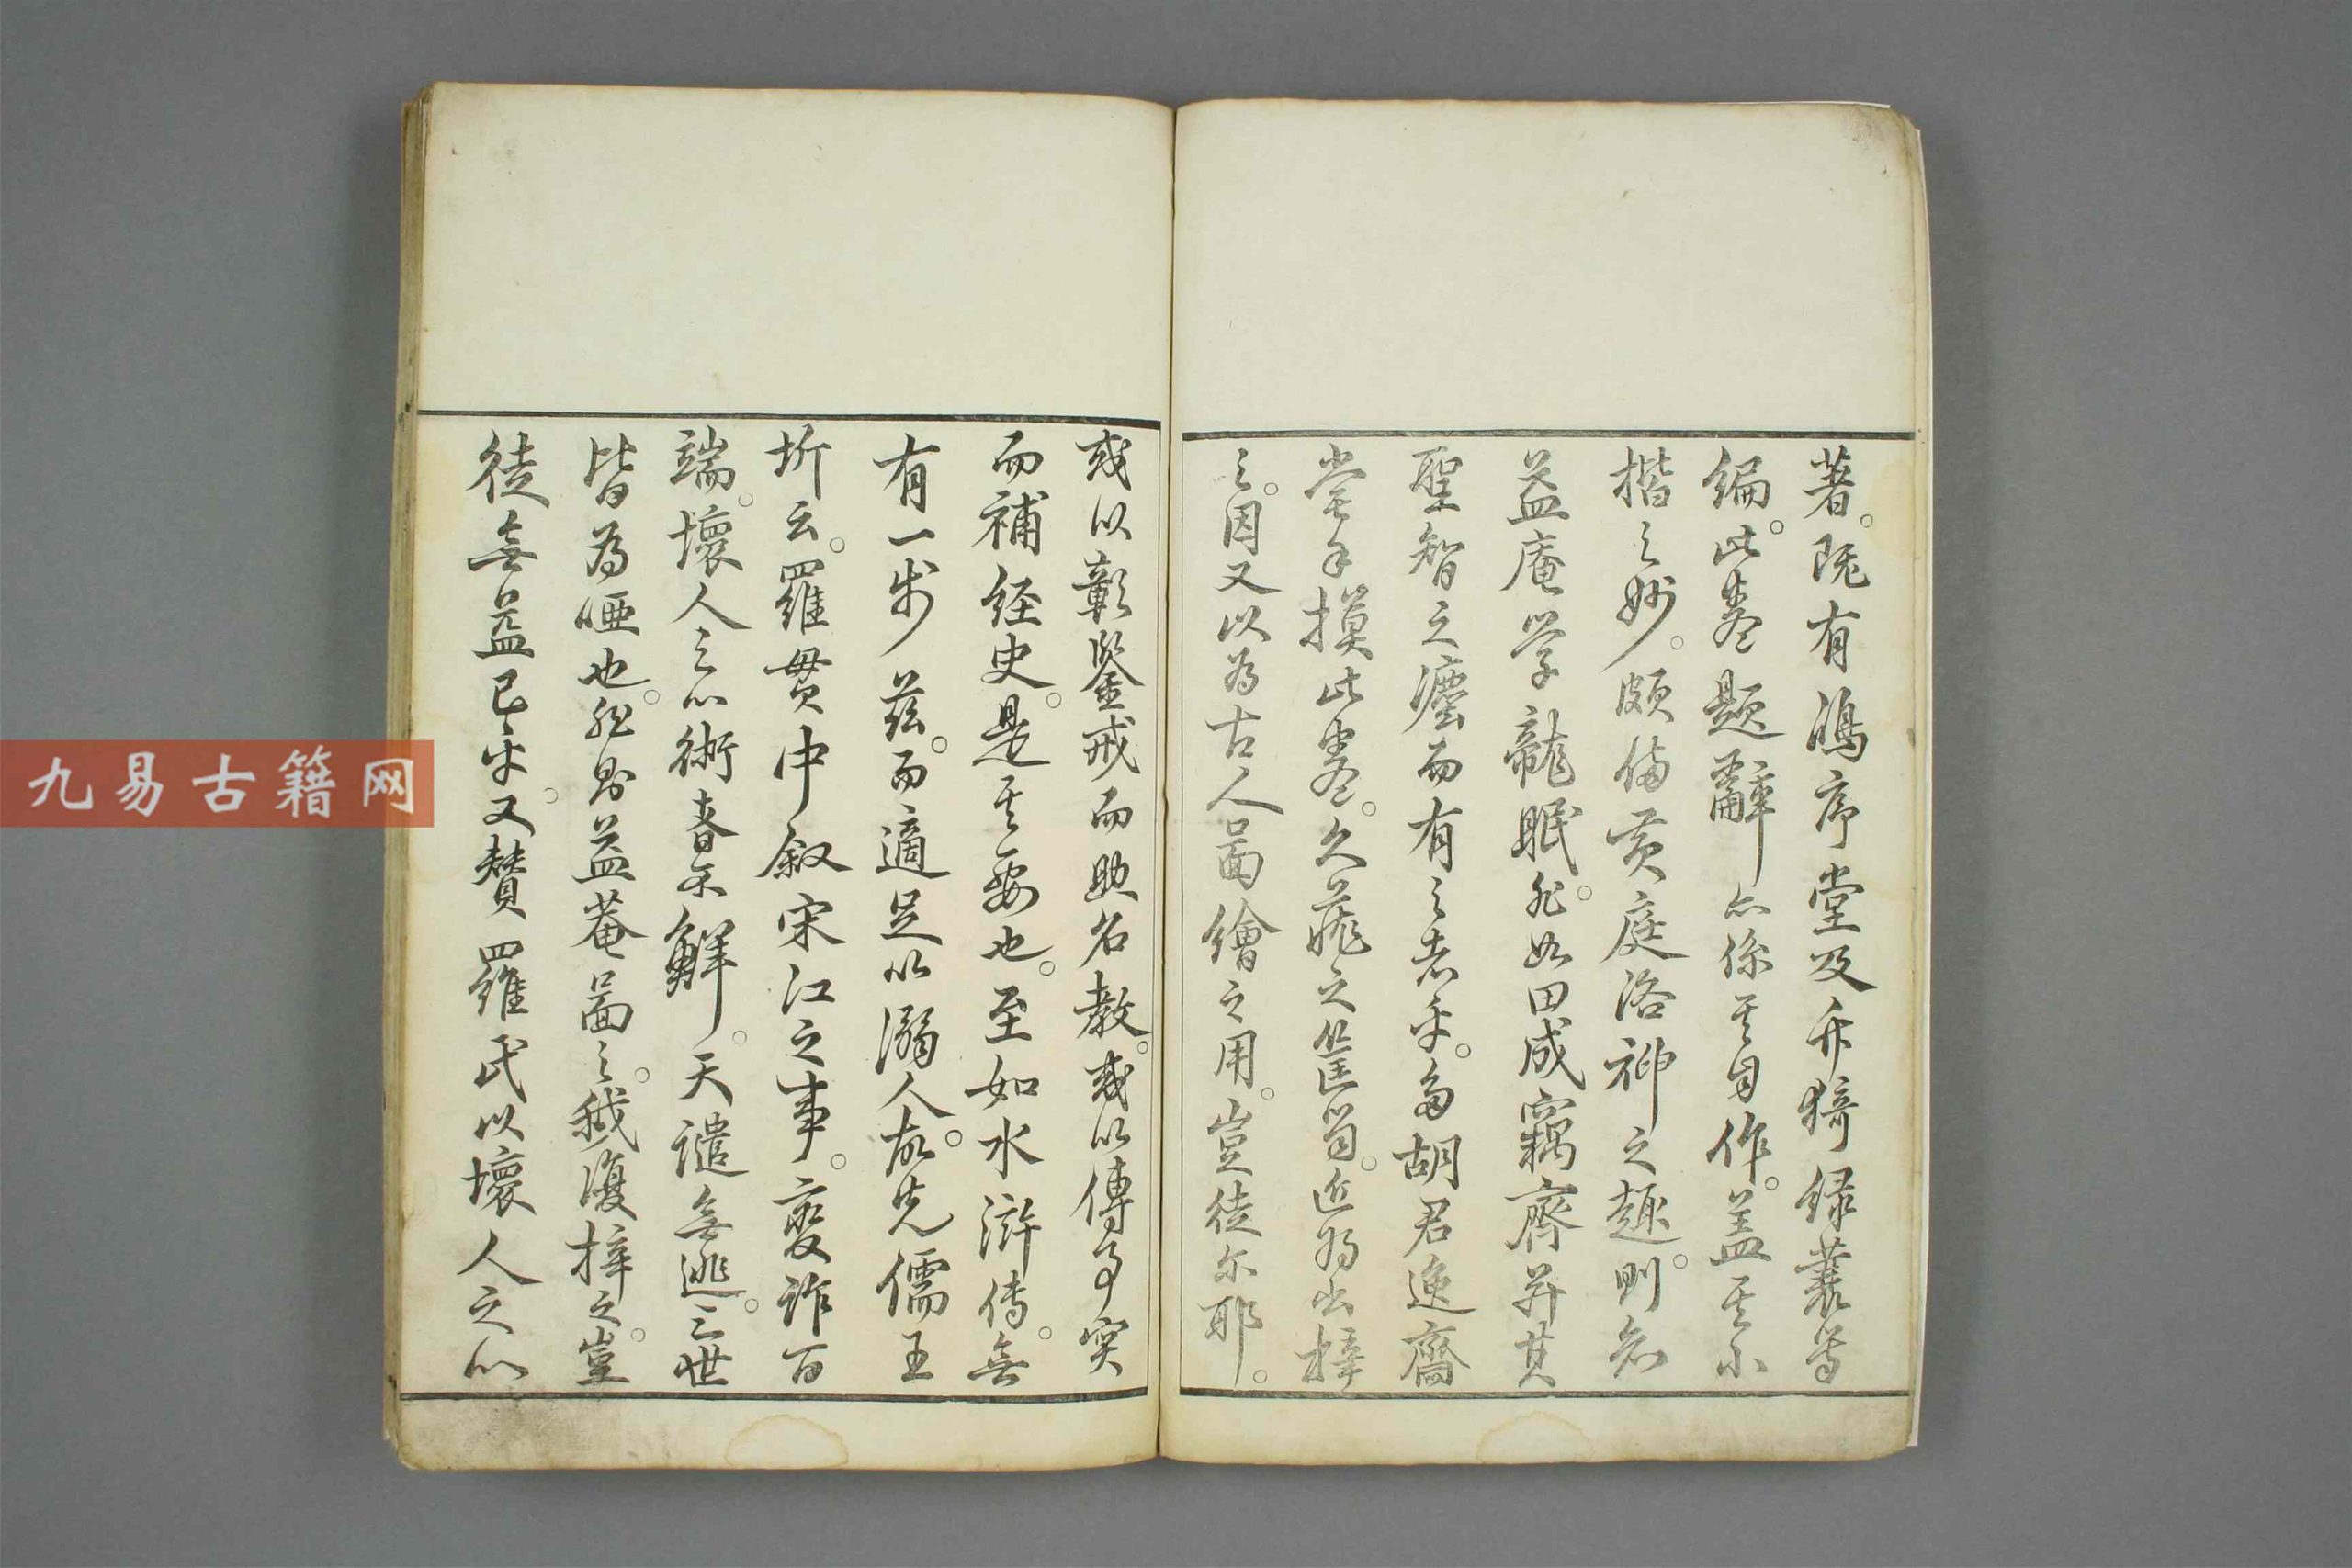 著。既有鴻序堂及弁猗録叢等
編。此卷題辭亦係其自作。盖其小
楷之妙。頗備黄庭洛神之趣。則知
益庵学龍眠。非如田成竊齊并其
聖智之
而有之者乎。
胡君逸齋
嘗手摸此卷。久蔵之筐笥。近将出梓
之。因又以為古人啚繪之用。豈徒尔耶。
或以彰鑒戒而助名教。或以傳事实
而補経史。是其要也。至如水滸傳。無
有一步兹。而適足以溺人。故先儒王
圻云。羅貫中叙宋江之事。変詐百
端。壞人之心術
天譴無逃。三世
皆為啞也。然則益菴啚之。
復梓之。豈
徒無益已乎。又賛羅氏以壞人之心
九易古籍网